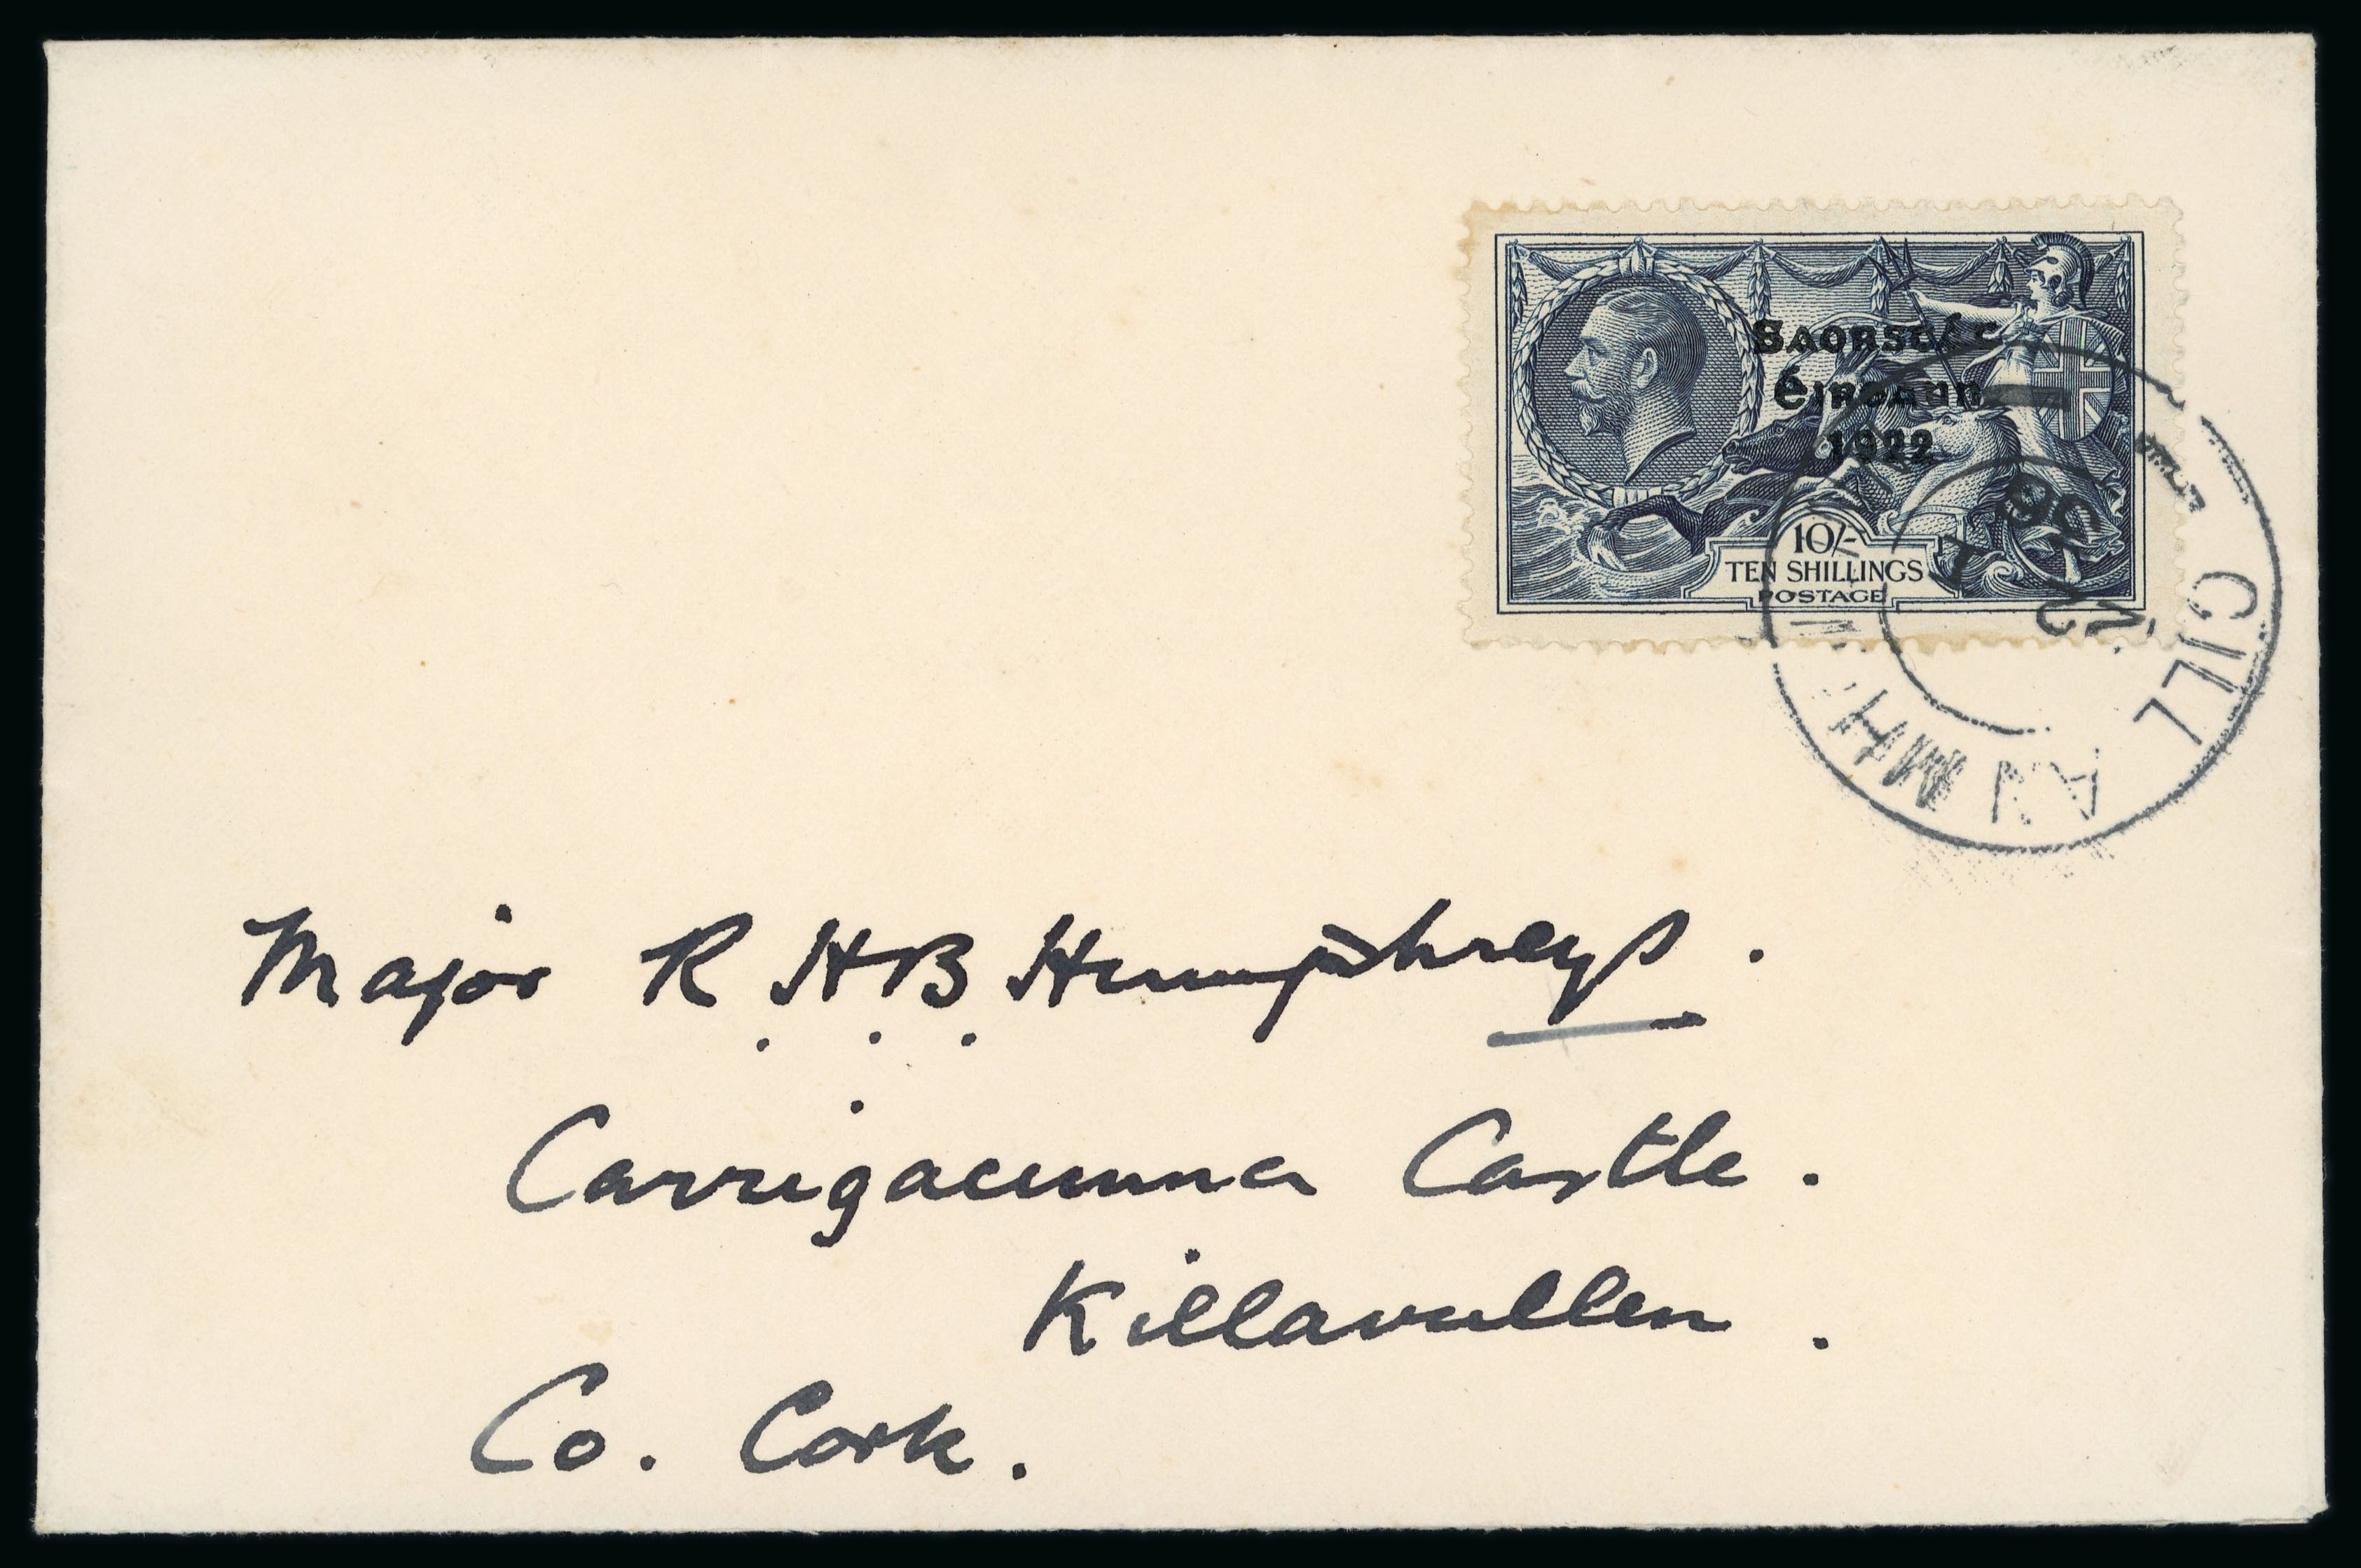 Saorstát
Éireann
1922
10/-
TEN SHILLINGS
POSTAGE
CILL AN MH
36
Major R.H.B. Humphreys.
Carrigacunna Castle.
Killavullen.
Co. Cork.